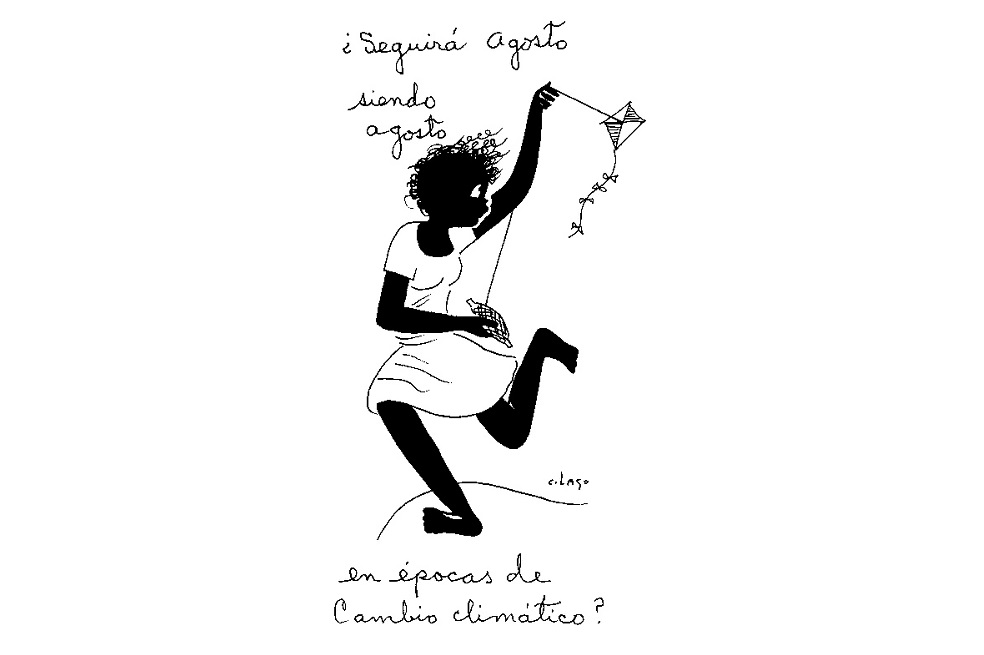 ¿Seguirá Agosto
siendo
agosto
c.Lago
en épocas de
Cambio climático?